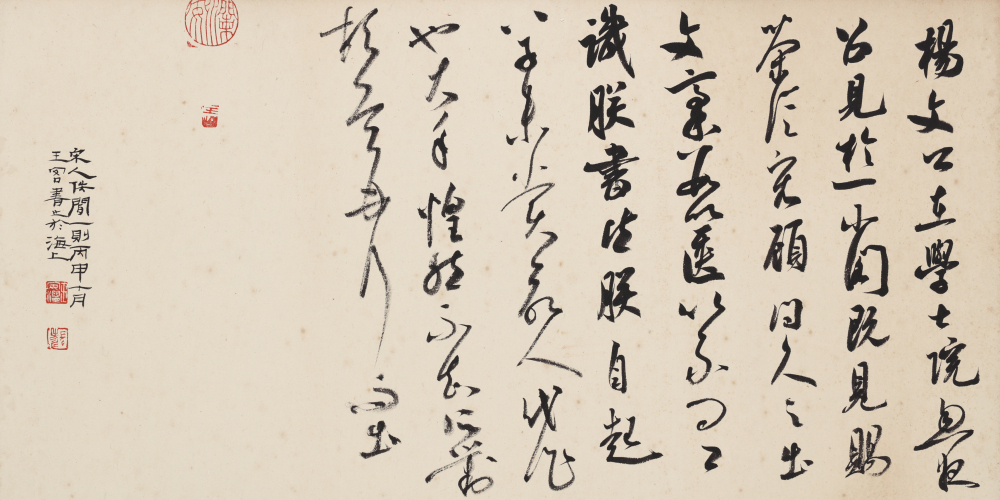 楊文公在學士院忽夜
召見於一小閣既見賜
茶從容顧問久之出
文稾數篋以示曰公
識朕書法朕自起
草未嘗命人代作
也大年惶恐不知所對
頓首再拜而出
宋人佚聞一則丙申十月
王書之於海上